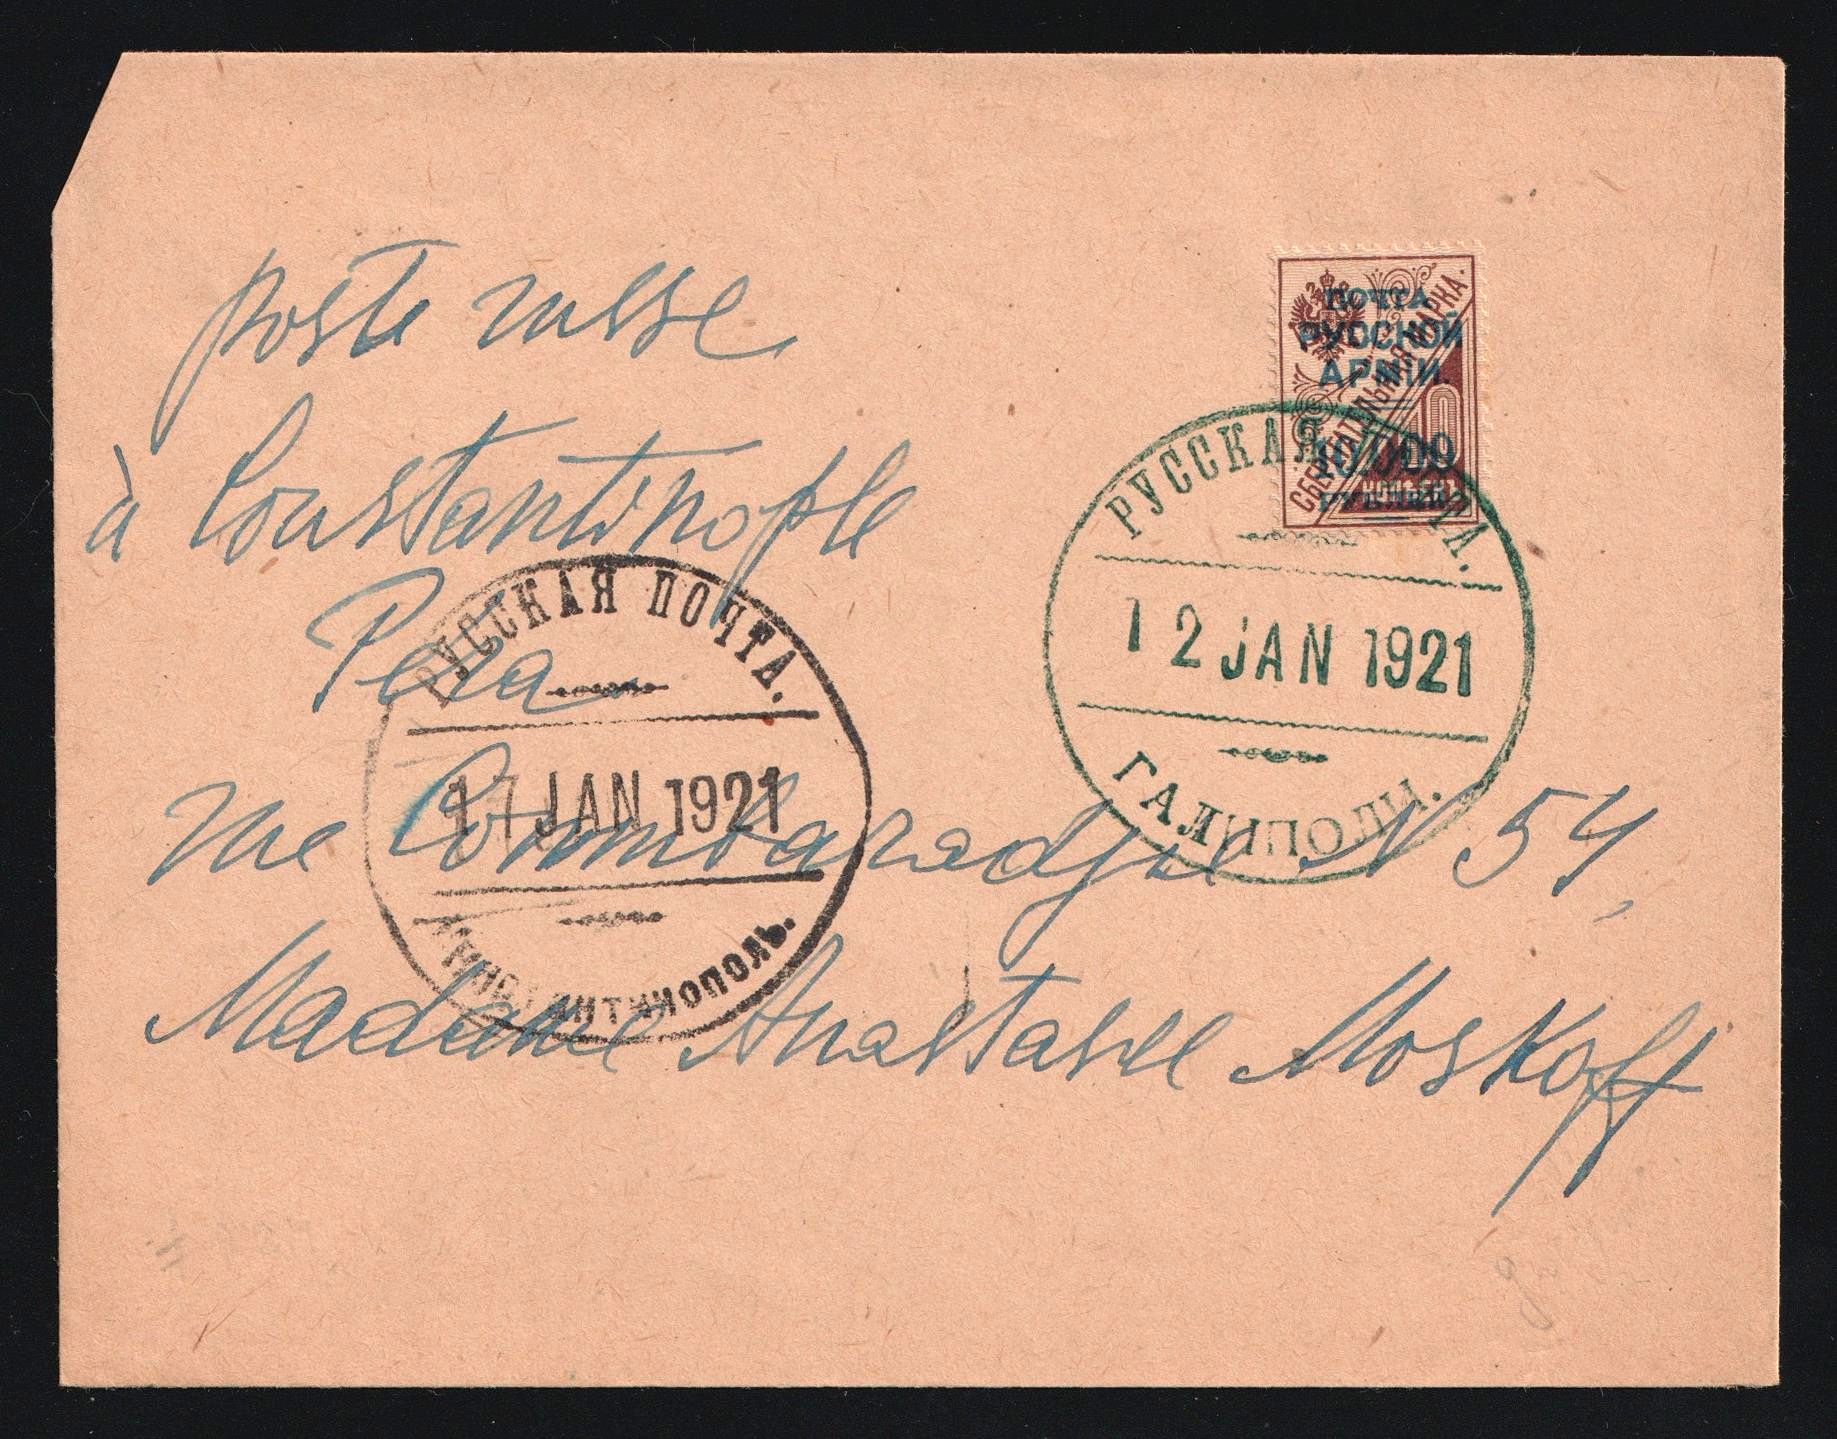 Poste russe
à Constantinople
Pera
rue Coumbaradjie N 54,
Madame Anastasie Moskoff
ПОЧТА
РУССКОЙ
АРМІИ.
10.000
РУБЛЕЙ
СБЕРЕГАТЕЛЬНАЯ МАРКА.
10
КОПѢЕКЪ
РУССКАЯ ПОЧТА.
12 JAN 1921
ГАЛИПОЛИ.
РУССКАЯ ПОЧТА.
17 JAN 1921
КОНСТАНТИНОПОЛЬ.